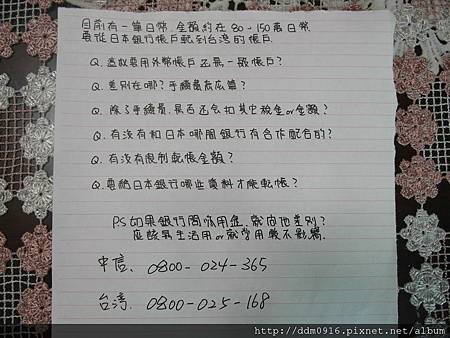 目前有一筆日幣,金額約在80-150萬日幣
要從日本銀行帳戶転到台湾的帳戶
Q.這款要用外幣帳戶还是一般帳戶?
Q.差別在哪?手續費怎麼算?
Q.除了手續費,是否还会扣其它稅金or金額?
Q.有沒有和日本哪間銀行有合作配合的?
Q.有沒有限制転帳金額?
Q.要給日本銀行哪些資料才能転帳?
P.S如果銀行問你用途,就問他差別?
應該是生活用or就学用,較不影響.
中信. 0800-024-365
台湾. 0800-025-168
http://ddm0916.pixnet.net/album